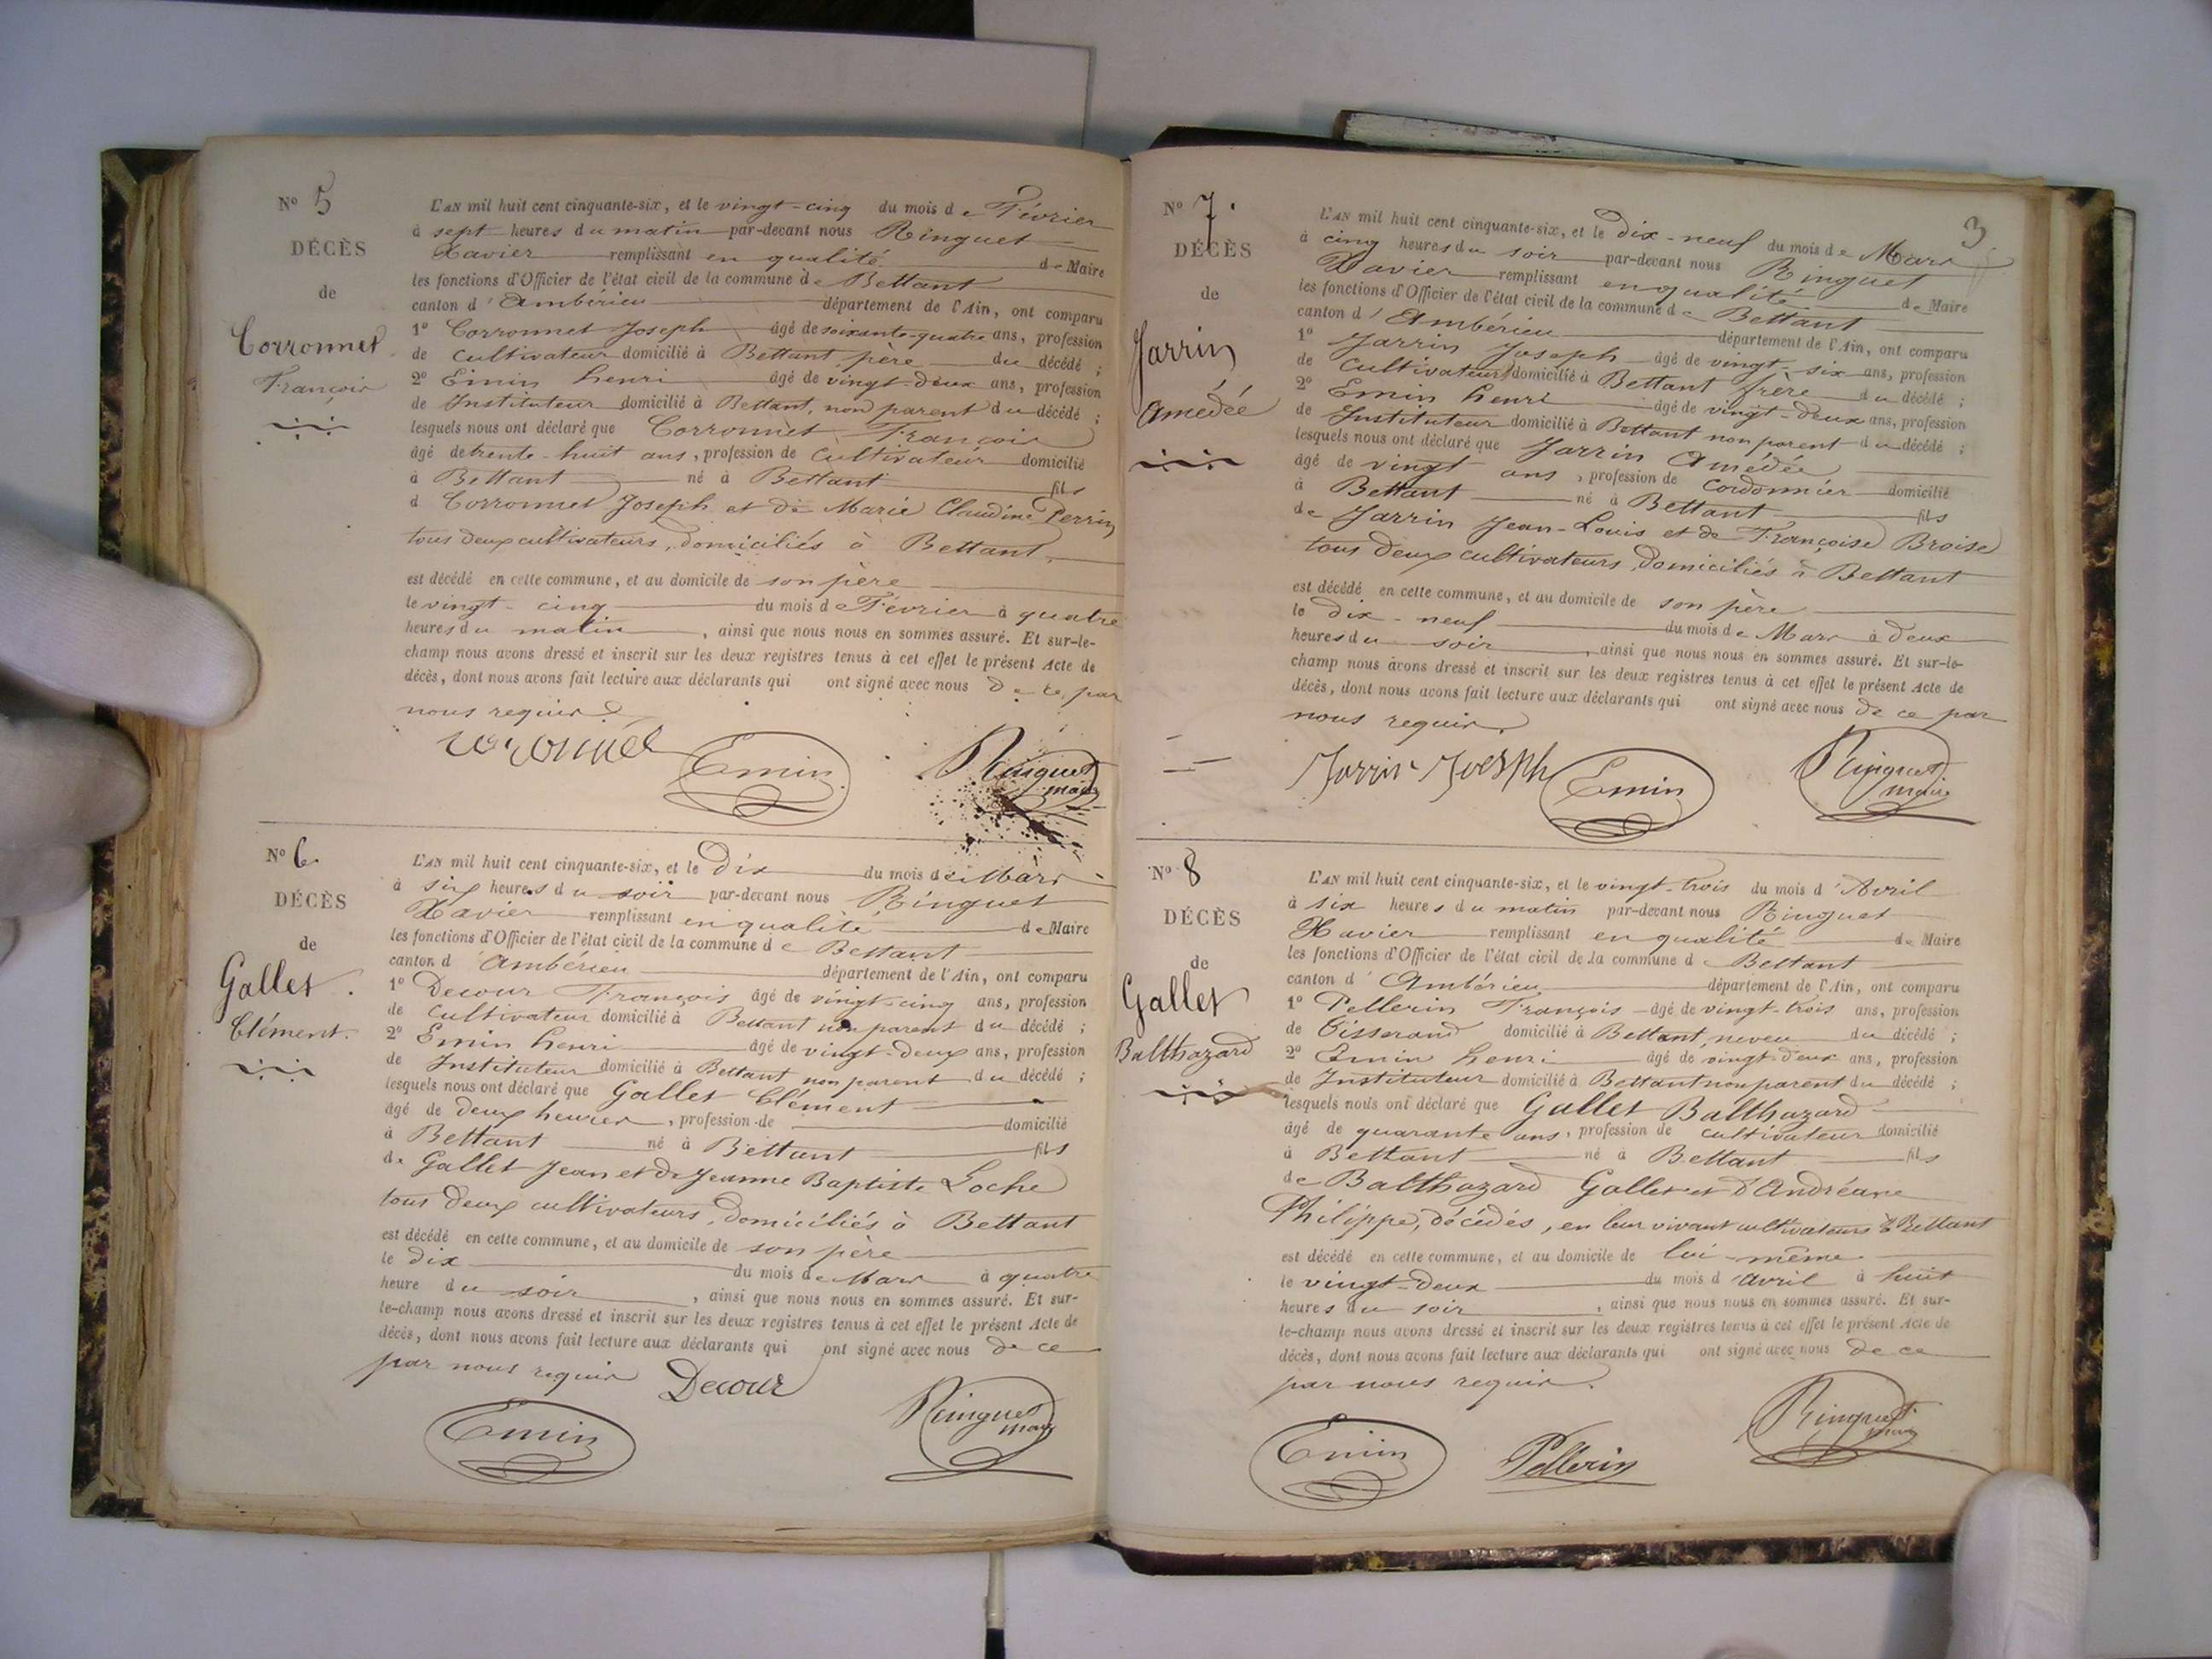 Nº 5
DÉCÈS
de
Corronnet
François
L'AN mil huit cent cinquante-six, et le vingt-cinq du mois de Février
à sept heures du matin par-devant nous Ringuet
Xavier remplissant en qualité de Maire
les fonctions d'Officier de l'état civil de la commune de Bettant
canton d'Ambérieu département de l'Ain, ont comparu
1º Corronnet Joseph âgé de soixante-quatre ans, profession
de cultivateur domicilié à Bettant père du décédé ;
2º Emin henri âgé de vingt-deux ans, profession
de Instituteur domicilié à Bettant, non parent du décédé ;
lesquels nous ont déclaré que Corronnet François
âgé de trente-huit ans, profession de cultivateur domicilié
à Bettant né à Bettant fils
d Corronnet Joseph et de Marie Claudine Perrin
tous deux cultivateurs, domiciliés à Bettant,
est décédé en cette commune, et au domicile de son père
le vingt-cinq du mois de Février à quatre
heures du matin, ainsi que nous nous en sommes assuré. Et sur-le-
champ nous avons dressé et inscrit sur les deux registres tenus à cet effet le présent Acte de
décès, dont nous avons fait lecture aux déclarants qui ont signé avec nous de ce par
nous requis
coronnet Emin Ringuet
maire
Nº 6
DÉCÈS
de
Gallet.
Clément.
L'AN mil huit cent cinquante-six, et le Dix du mois de Mars
à six heures du soir par-devant nous Ringuet
Xavier remplissant en qualité de Maire
les fonctions d'Officier de l'état civil de la commune de Bettant
canton d'Ambérieu département de l'Ain, ont comparu
1º Decour François âgé de vingt-cinq ans, profession
de cultivateur domicilié à Bettant non parent du décédé ;
2º Emin henri âgé de vingt-deux ans, profession
de Instituteur domicilié à Bettant non parent du décédé ;
lesquels nous ont déclaré que Gallet Clément
âgé de deux heures, profession de domicilié
à Bettant né à Bettant fils
de Gallet Jean et de Jeanne Baptiste Loche
tous deux cultivateurs, domiciliés à Bettant
est décédé en cette commune, et au domicile de son père
le dix du mois de Mars à quatre
heure du soir, ainsi que nous nous en sommes assuré. Et sur-
le-champ nous avons dressé et inscrit sur les deux registres tenus à cet effet le présent Acte de
décès, dont nous avons fait lecture aux déclarants qui ont signé avec nous de ce
par nous requis Decour
Emin Ringuet
maire
3
Nº 7.
DÉCÈS
de
Jarrin
Amédée
L'AN mil huit cent cinquante-six, et le dix-neuf du mois de Mars
à cinq heures du soir par-devant nous Ringuet
Xavier remplissant en qualité de Maire
les fonctions d'Officier de l'état civil de la commune de Bettant
canton d'Ambérieu département de l'Ain, ont comparu
1º Jarrin Joseph âgé de vingt-six ans, profession
de Cultivateur domicilié à Bettant frère du décédé ;
2º Emin henri âgé de vingt-deux ans, profession
de Instituteur domicilié à Bettant non parent du décédé ;
lesquels nous ont déclaré que Jarrin Amédée
âgé de vingt ans, profession de Cordonnier domicilié
à Bettant né à Bettant fils
de Jarrin Jean-Louis et de Françoise Broise
tous deux cultivateurs, domiciliés à Bettant
est décédé en cette commune, et au domicile de son père
le dix-neuf du mois de Mars à deux
heures du soir, ainsi que nous nous en sommes assuré. Et sur-le-
champ nous avons dressé et inscrit sur les deux registres tenus à cet effet le présent Acte de
décès, dont nous avons fait lecture aux déclarants qui ont signé avec nous de ce par
nous requis.
Jarrin Joesph Emin Ringuet
maire
Nº 8
DÉCÈS
de
Gallet
Balthazard
L'AN mil huit cent cinquante-six, et le vingt-trois du mois d'Avril
à six heures du matin par-devant nous Ringuet
Xavier remplissant en qualité de Maire
les fonctions d'Officier de l'état civil de la commune d Bettant
canton d'Ambérieu, département de l'Ain, ont comparu
1º Pellerin François âgé de vingt-trois ans, profession
de Tisserand domicilié à Bettant, neveu du décédé ;
2º Emin henri âgé de vingt-deux ans, profession
de Instituteur domicilié à Bettant non parent du décédé ;
lesquels nous ont déclaré que Gallet Balthazard
âgé de quarante ans, profession de cultivateur domicilié
à Bettant né à Bettant fils
de Balthazard Gallet et d'Andréane
Philippe, décédés, en leur vivant cultivateurs à Bettant
est décédé en cette commune, et au domicile de lui-même
le vingt-deux du mois d'avril à huit
heures du soir, ainsi que nous nous en sommes assuré. Et sur-
le-champ nous avons dressé et inscrit sur les deux registres tenus à cet effet le présent Acte de
décès, dont nous avons fait lecture aux déclarants qui ont signé avec nous de ce
par nous requis.
Emin Pellerin Ringuet
maire